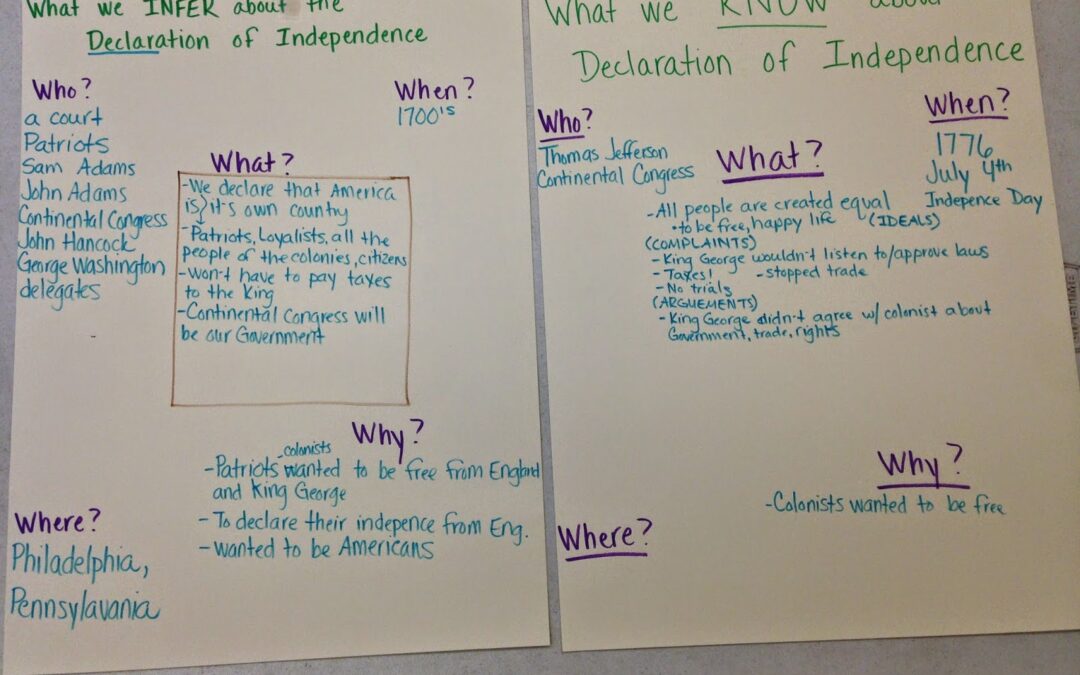 What we INFER about the
Declaration of Independence
Who?
a court
Patriots
Sam Adams
John Adams
Continental Congress
John Hancock
George Washington
delegates
When?
1700's
What?
-We declare that America
is it's own country
-Patriots, Loyalists, all the
people of the colonies, citizens
-Won't have to pay taxes
to the King
-Continental Congress will
be our Government
Why?
-colonists
-Patriots wanted to be free from England
and King George
-To declare their indepence from Eng.
-wanted to be Americans
Where?
Philadelphia,
Pennsylavania
What we KNOW about
Declaration of Independence
Who?
Thomas Jefferson
Continental Congress
When?
1776
July 4th
Indepence Day
What?
-All people are created equal
•to be free, happy life (IDEALS)
(COMPLAINTS)
-King George wouldn't listen to/approve laws
-Taxes! -stopped trade
-No trials
(ARGUEMENTS)
-King George didn't agree w/ colonist about
Government, trade, rights
Why?
-Colonists wanted to be free
Where?